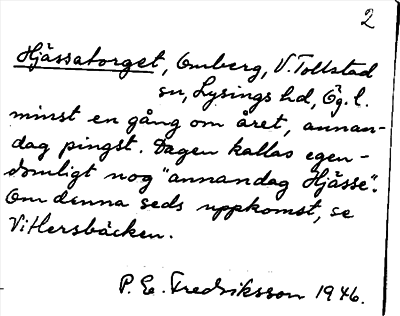 2
Hjässatorget, Omberg, V. Tollstad
sn, Lysings hd, Ög. l.
minst en gång om året, annan-
dag pingst. Dagen kallas egen-
domligt nog "annandag Hjässe".
Om denna seds uppkomst, se
Vitlersbäcken.
P. E. Fredriksson 1946.